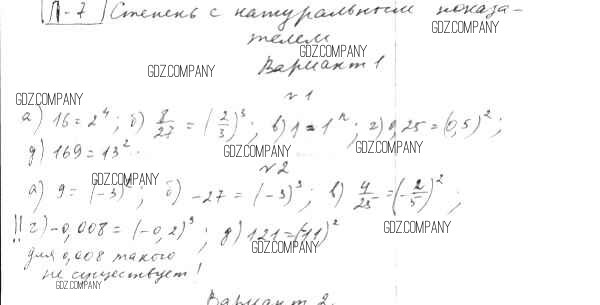 П-7 Степень с натуральным показа-
телем
Вариант 1
№1
а) 16 = 2^4; б) 8/27 = (2/3)^3; в) 1 = 1^n; г) 0,25 = (0,5)^2;
д) 169 = 13^2.
№2
а) 9 = (-3)^2; б) -27 = (-3)^3; в) 4/25 = (-2/5)^2;
!! г) -0,008 = (-0,2)^3; д) 121 = (-11)^2
для 0,008 такого
не существует!
Вариант 2.
GDZ.COMPANY
GDZ.COMPANY
GDZ.COMPANY
GDZ.COMPANY
GDZ.COMPANY
GDZ.COMPANY
GDZ.COMPANY
GDZ.COMPANY
GDZ.COMPANY
GDZ.COMPANY